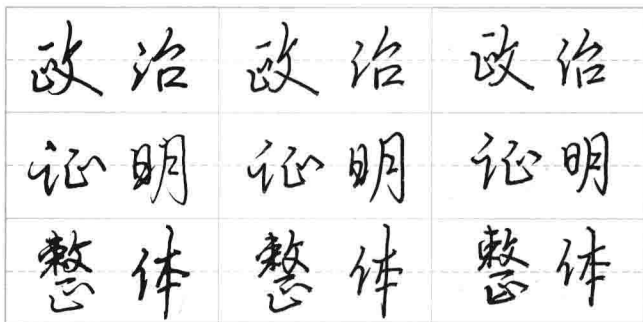 政治 政治 政治
证明 证明 证明
整体 整体 整体